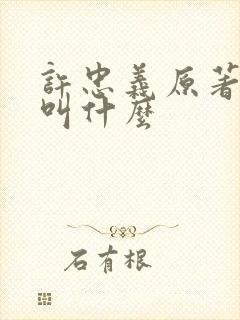 許忠義原著
叫什麼
石有根